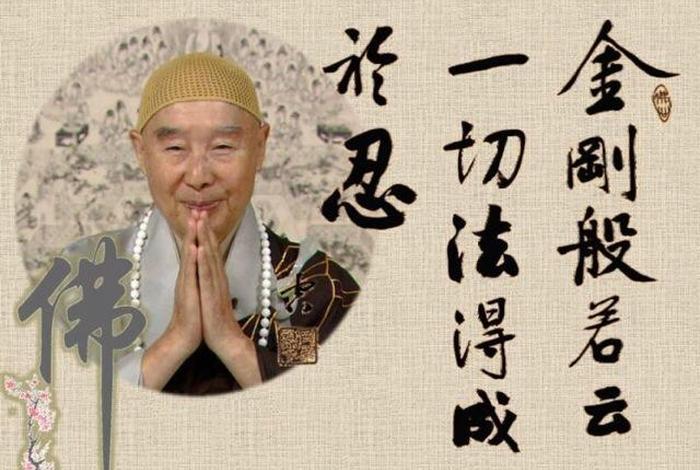 金剛般若云
一切法得成
於忍
佛